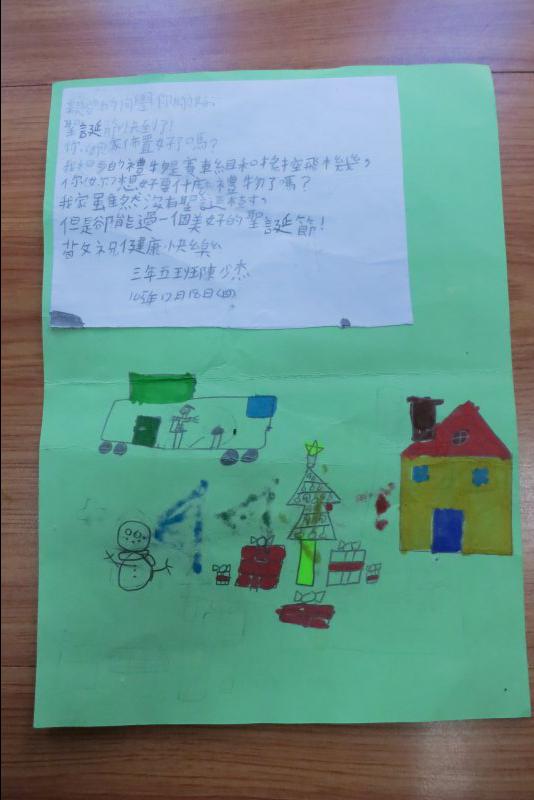 親愛的同學你們好:
聖誕節快到了!
你們家佈置好了嗎?
我想要的禮物是賽車組和搖控飛機,
你們想好要什麼禮物了嗎?
我家雖然沒有聖誕樹,
但是卻能過一個美好的聖誕節!
皆文祝你健康快樂
三年五班陳少杰
12月18日(四)